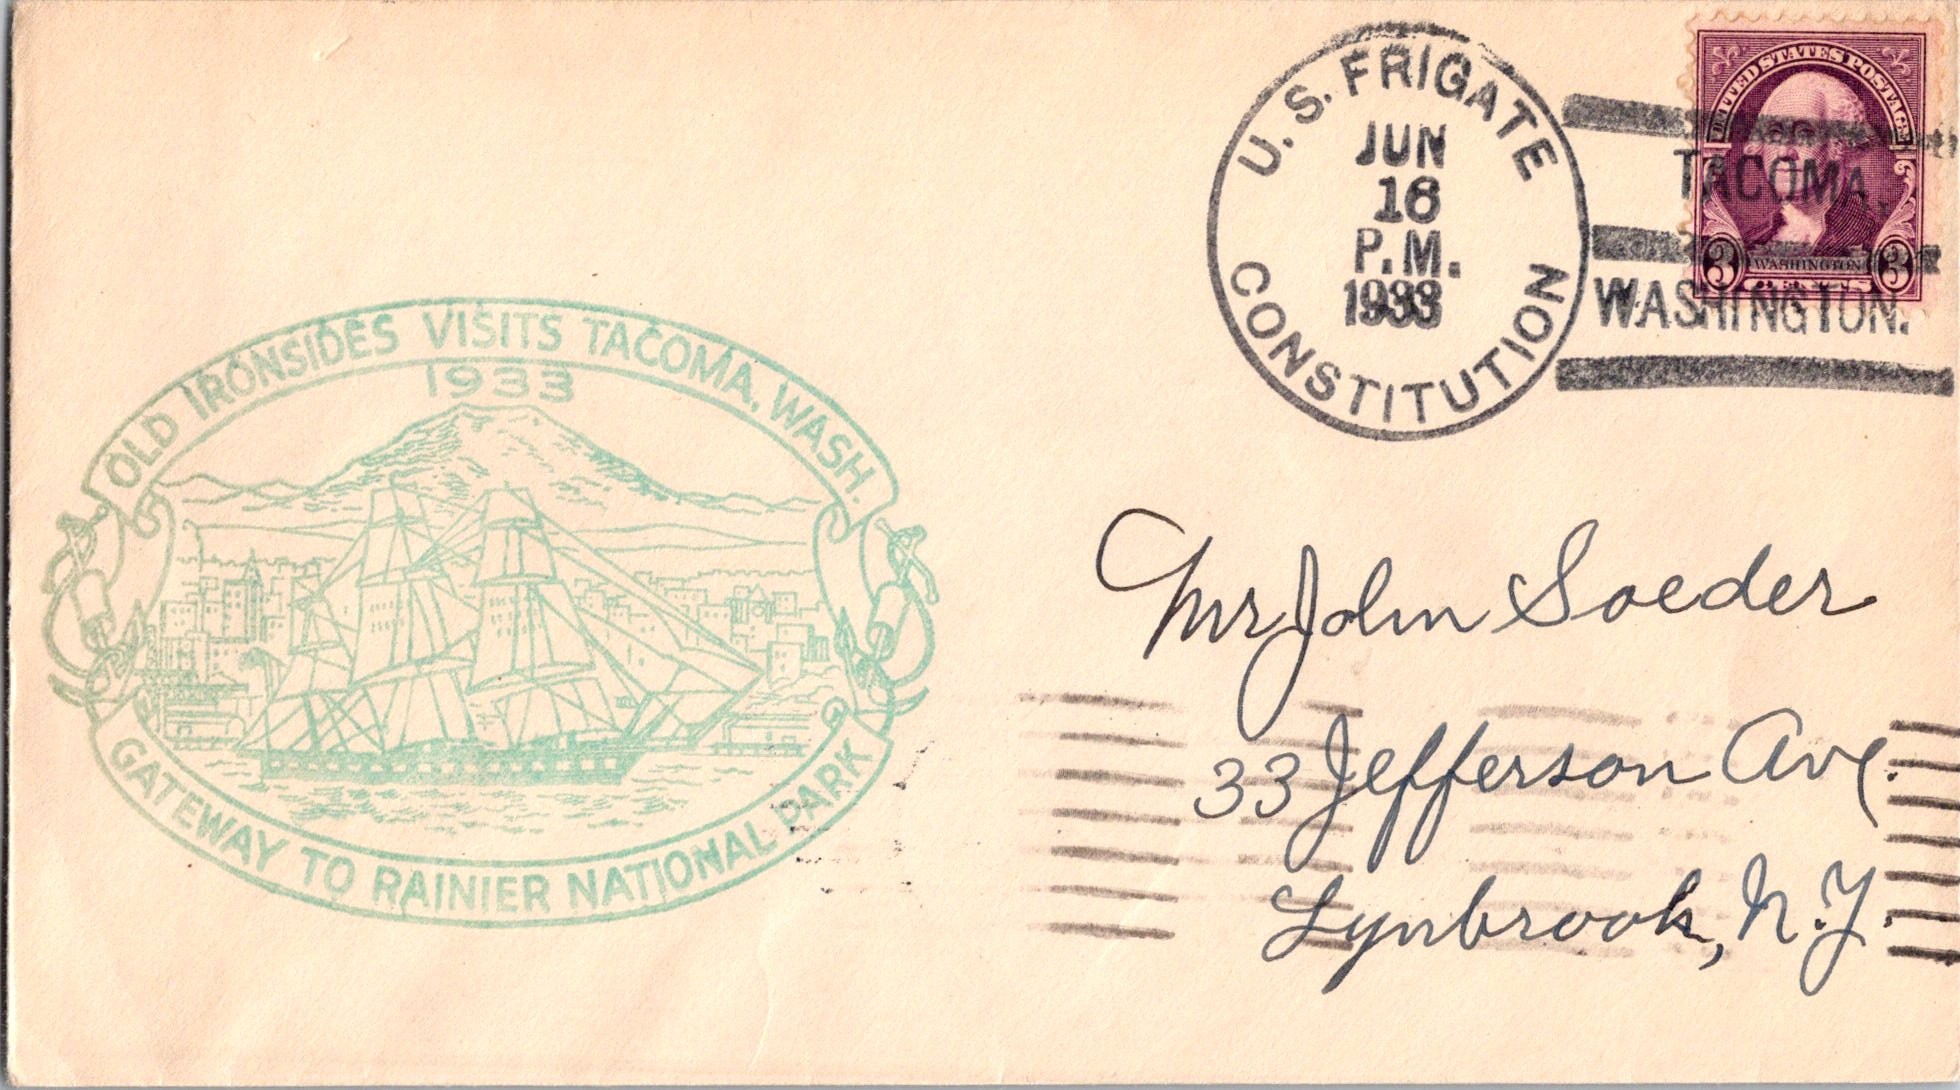 OLD IRONSIDES VISITS TACOMA, WASH.
1933
GATEWAY TO RAINIER NATIONAL PARK
U.S. FRIGATE
JUN
16
P.M.
1933
CONSTITUTION
TACOMA,
WASHINGTON.
UNITED STATES POSTAGE
3 WASHINGTON 3
CENTS
Mr John Soeder
33 Jefferson Ave.
Lynbrook, N.Y.